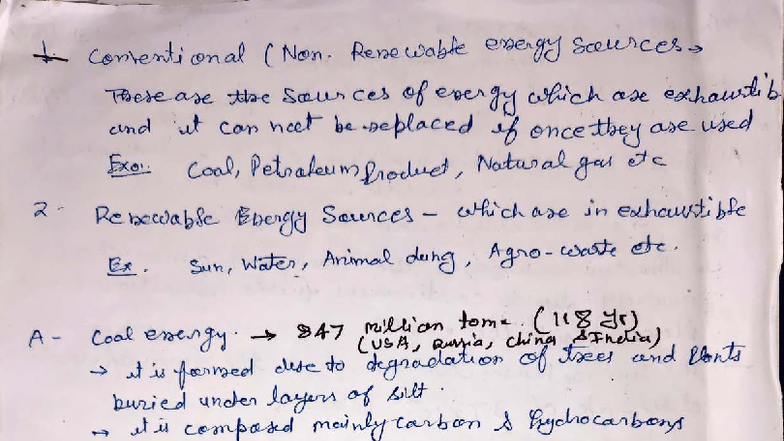 1. Conventional (Non. Renewable energy sources →
These are the sources of energy which are exhaustib
and it can not be replaced if once they are used
Exo:. Coal, Petroleum Product, Natural gas etc
2. Renewable Energy Sources - which are in exhaustible
Ex. Sun, Water, Animal dung, Agro-waste etc.
A- Coal energy. → 847 million tome. (118 yr)
(USA, Russia, China & India)
→ it is formed due to degradation of trees and plants
buried under layers of silt.
→ it is composed mainly carbon & hydrocarbons